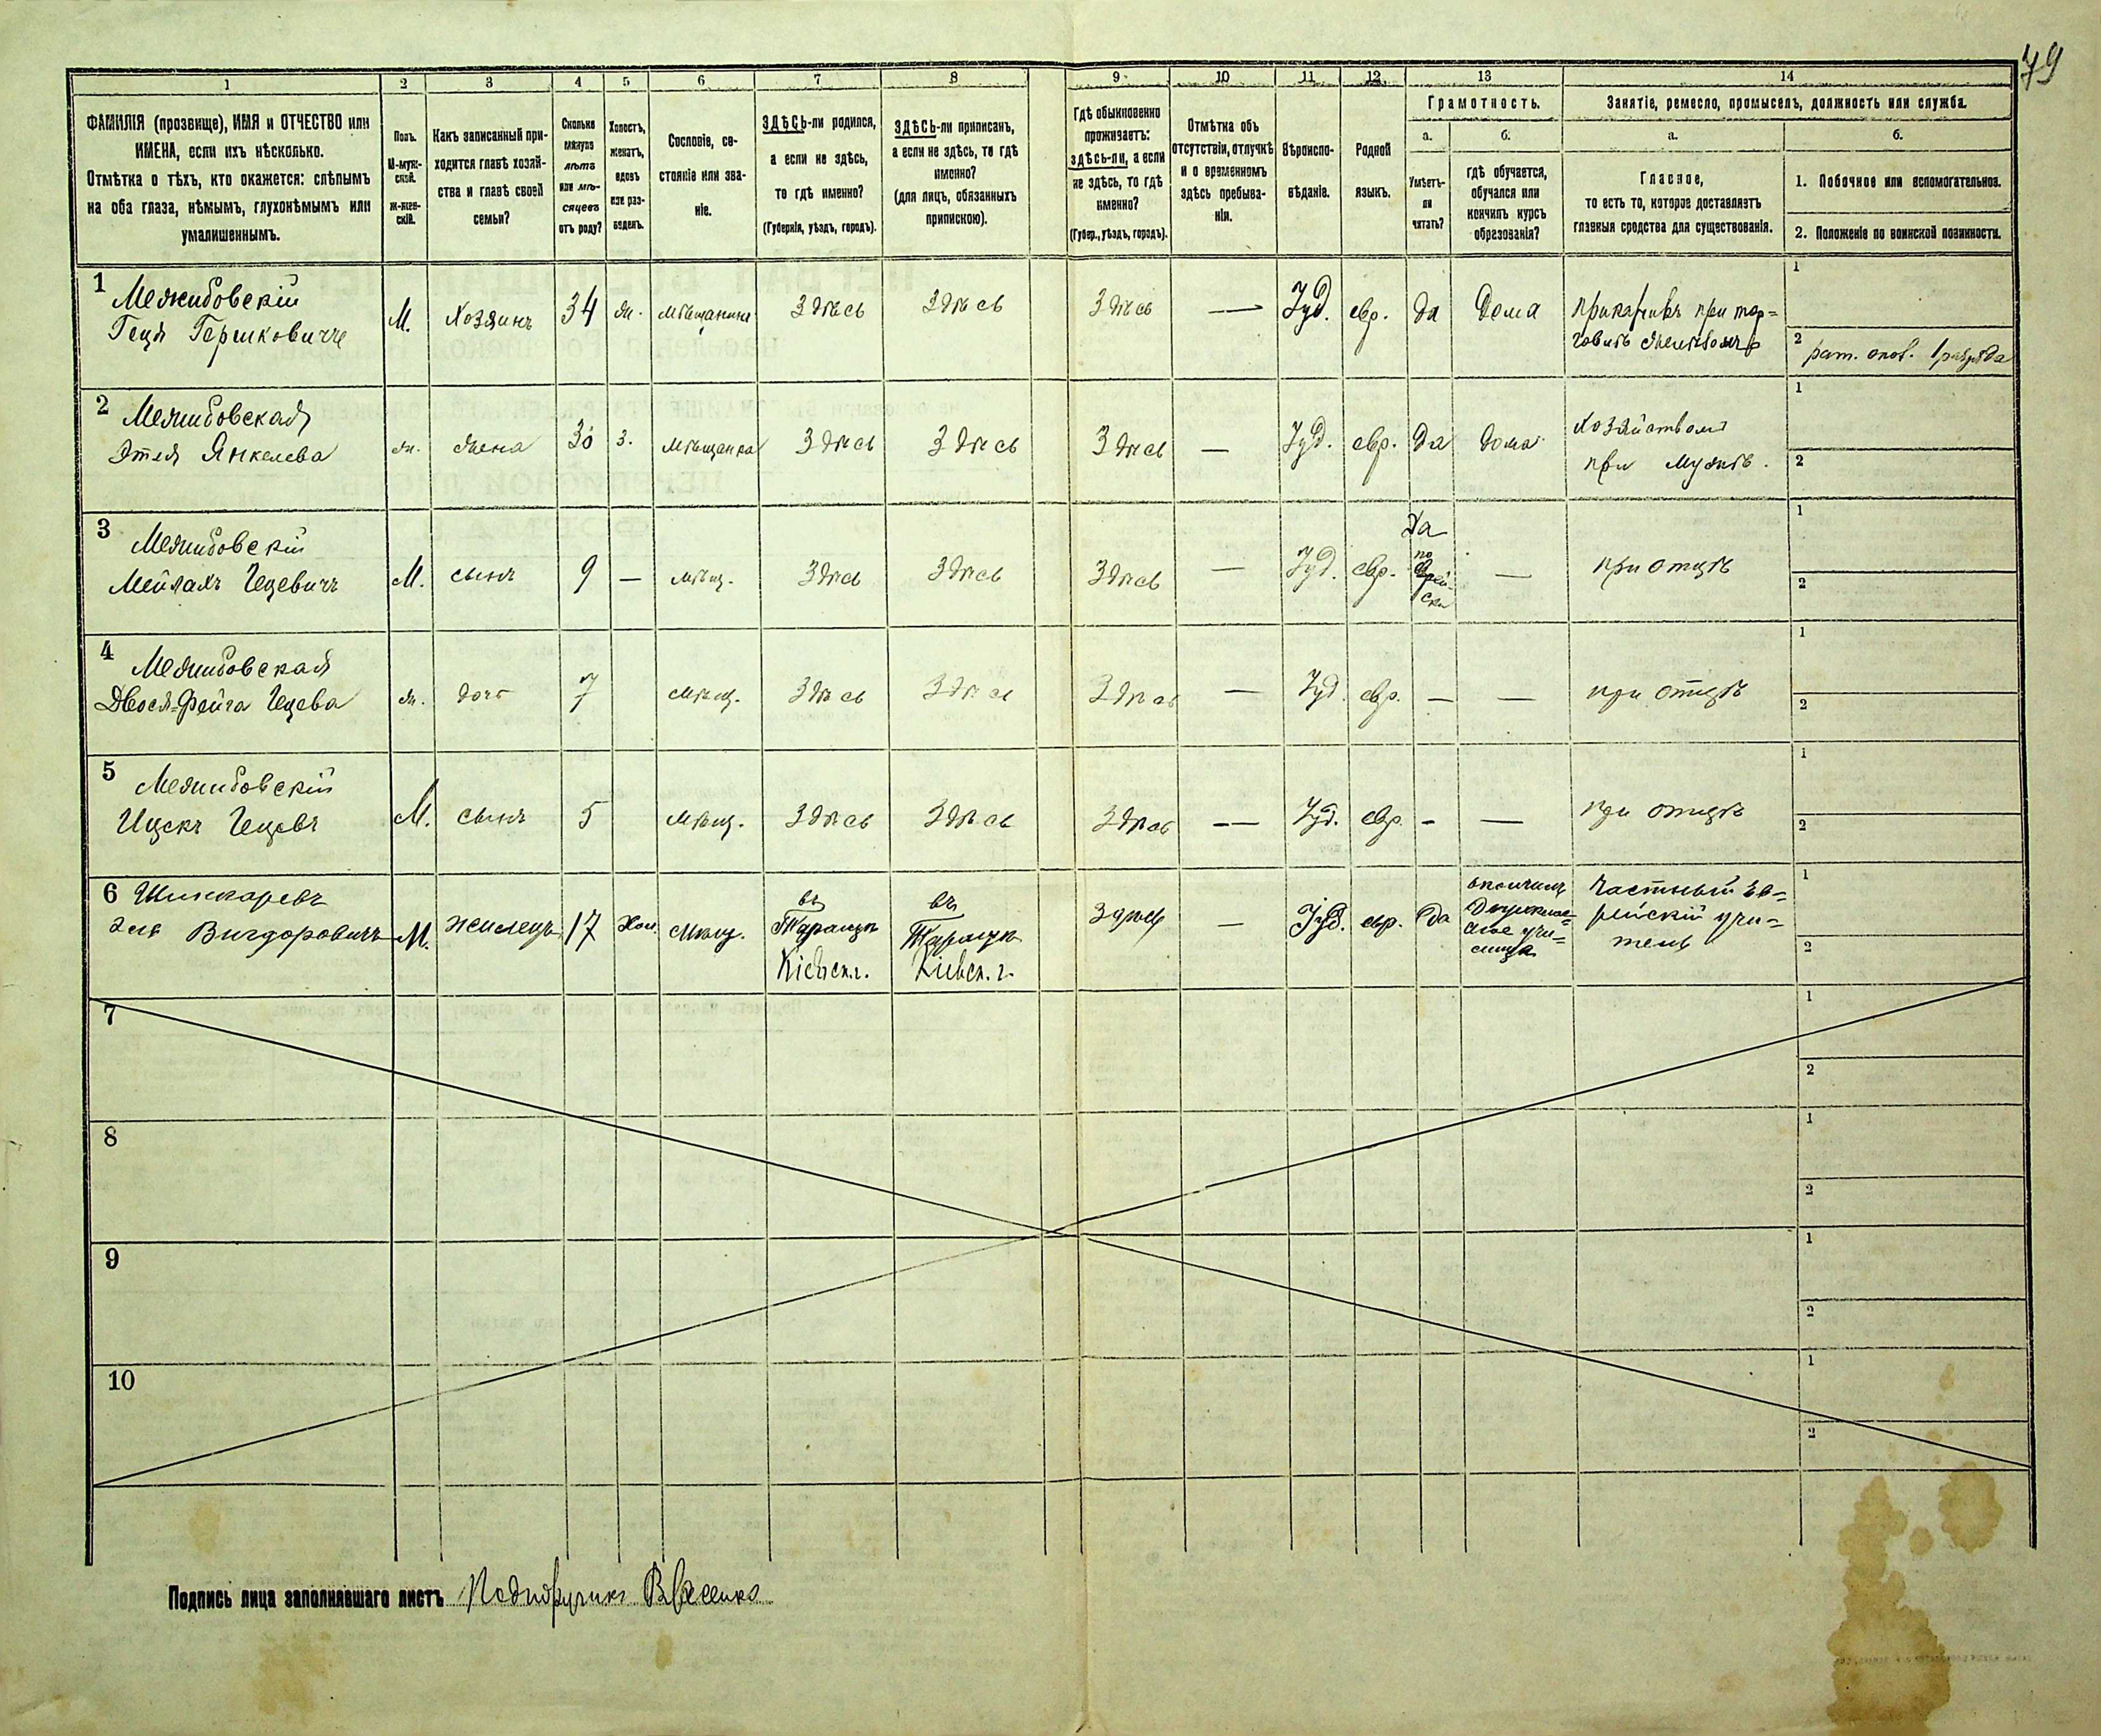 79
1 2 3 4 5 6 7 8 9 10 11 12 13 14
ФАМИЛІЯ (прозвище), ИМЯ и ОТЧЕСТВО или
ИМЕНА, если ихъ нѣсколько.
Отмѣтка о тѣхъ, кто окажется: слѣпымъ
на оба глаза, нѣмымъ, глухонѣмымъ или
умалишеннымъ.
Полъ.
М-муж-
ской.
Ж-жен-
скій.
Какъ записанный при-
ходится главѣ хозяй-
ства и главѣ своей
семьи?
Сколько
минуло
лѣтъ
или мѣ-
сяцевъ
отъ роду?
Холостъ,
женатъ,
вдовъ
или раз-
веденъ.
Сословіе, со-
стояніе или зва-
ніе.
ЗДѢСЬ-ли родился,
а если не здѣсь,
то гдѣ именно?
(Губернія, уѣздъ, городъ).
ЗДѢСЬ-ли приписанъ,
а если не здѣсь, то гдѣ
именно?
(для лицъ, обязанныхъ
припискою).
Гдѣ обыкновенно
проживаетъ:
здѣсь-ли, а если
не здѣсь, то гдѣ
именно?
(Губер., уѣздъ, городъ).
Отмѣтка объ
отсутствіи, отлучкѣ
и о временномъ
здѣсь пребыва-
ніи.
Вѣроиспо-
вѣданіе.
Родной
языкъ.
Грамотность.
а.
Умѣетъ-
ли
читать?
б.
гдѣ обучается,
обучался или
кончилъ курсъ
образованія?
Занятіе, ремесло, промыселъ, должность или служба.
а.
Главное,
то есть то, которое доставляетъ
главныя средства для существованія.
б.
1. Побочное или вспомогательное.
2. Положеніе по воинской повинности.
1 Межибовскій
Геця Гершковичъ
М. Хозяинъ 34 ж. мѣщанинъ Здѣсь Здѣсь Здѣсь — Іуд. евр. да Дома
приказчикъ при тор=
говлѣ
1
2 рат. опол. 1 разряда
2 Межибовская
Этля Янкелева
ж. жена 30 з. мѣщанка Здѣсь Здѣсь Здѣсь — Іуд. евр. да дома
хозяйством
при мужѣ.
1
2
3 Межибовскій
Мейлахъ Гецевичъ
М. сынъ 9 — мѣщ. Здѣсь Здѣсь Здѣсь — Іуд. евр.
Да
по
еврей-
ски
— при отцѣ
1
2
4 Межибовская
Двося-Фейга Гецева
ж. дочь 7 мѣщ. Здѣсь Здѣсь Здѣсь — Іуд. евр. — — при отцѣ
1
2
5 Межибовскій
Ицекъ Гецевъ
М. сынъ 5 мѣщ. Здѣсь Здѣсь Здѣсь — Іуд. евр. - — при отцѣ
1
2
6 Шинкаревъ
Эля Вигдоровичъ
М. жилецъ 17 Хол. мѣщ.
въ
Таращѣ
Кіевск. г.
въ
Таращѣ
Кіевск. г.
здѣсь — Іуд. евр. да
окончилъ
Двухклас=
сное учи=
лище
Частный ев=
рейскій учи=
тель
1
2
7
1
2
8
1
2
9
1
2
10
1
2
Подпись лица заполнявшаго листъ Подпоручикъ